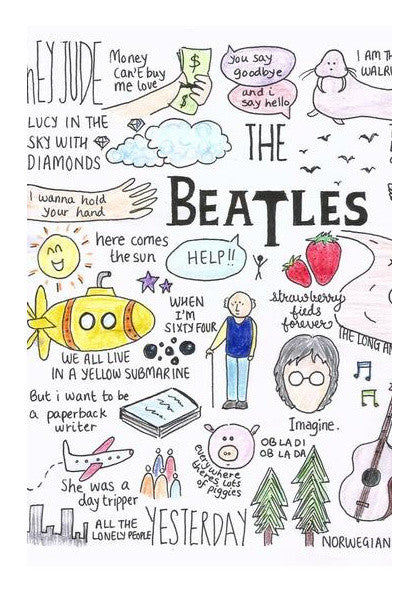 HEY JUDE
Money
can't buy
me love
$
$
you say
goodbye
and i
say hello
I AM TH
WALR
LUCY IN THE
SKY WITH
DIAMONDS
THE
BEATLES
I wanna hold
your hand
here comes
the sun
HELP!!
strawberry
fieds
forever
THE LONG AN
WHEN
I'M
SIXTY FOUR
WE ALL LIVE
IN A YELLOW SUBMARINE
But i want to be
a paperback
writer
Imagine.
everywhere
theres lots
of piggies
OBLADI
OB LA DA
She was a
day tripper
ALL THE
LONELY PEOPLE
YESTERDAY
NORWEGIAN